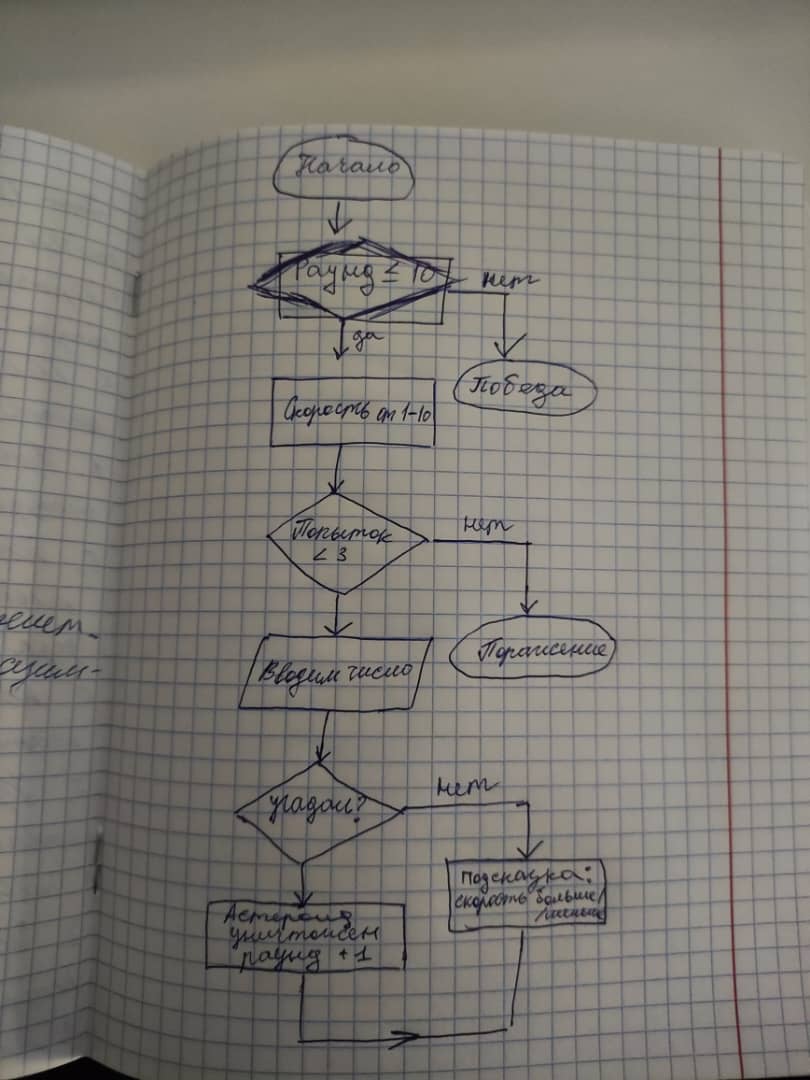 Начало
Раунд ≤ 10
нет
да
Победа
Скорость от 1-10
Попыток
< 3
нет
Поражение
Вводим число
угадал?
нет
Подсказка:
скорость больше/
/меньше
Астероид
уничтожен
раунд +1